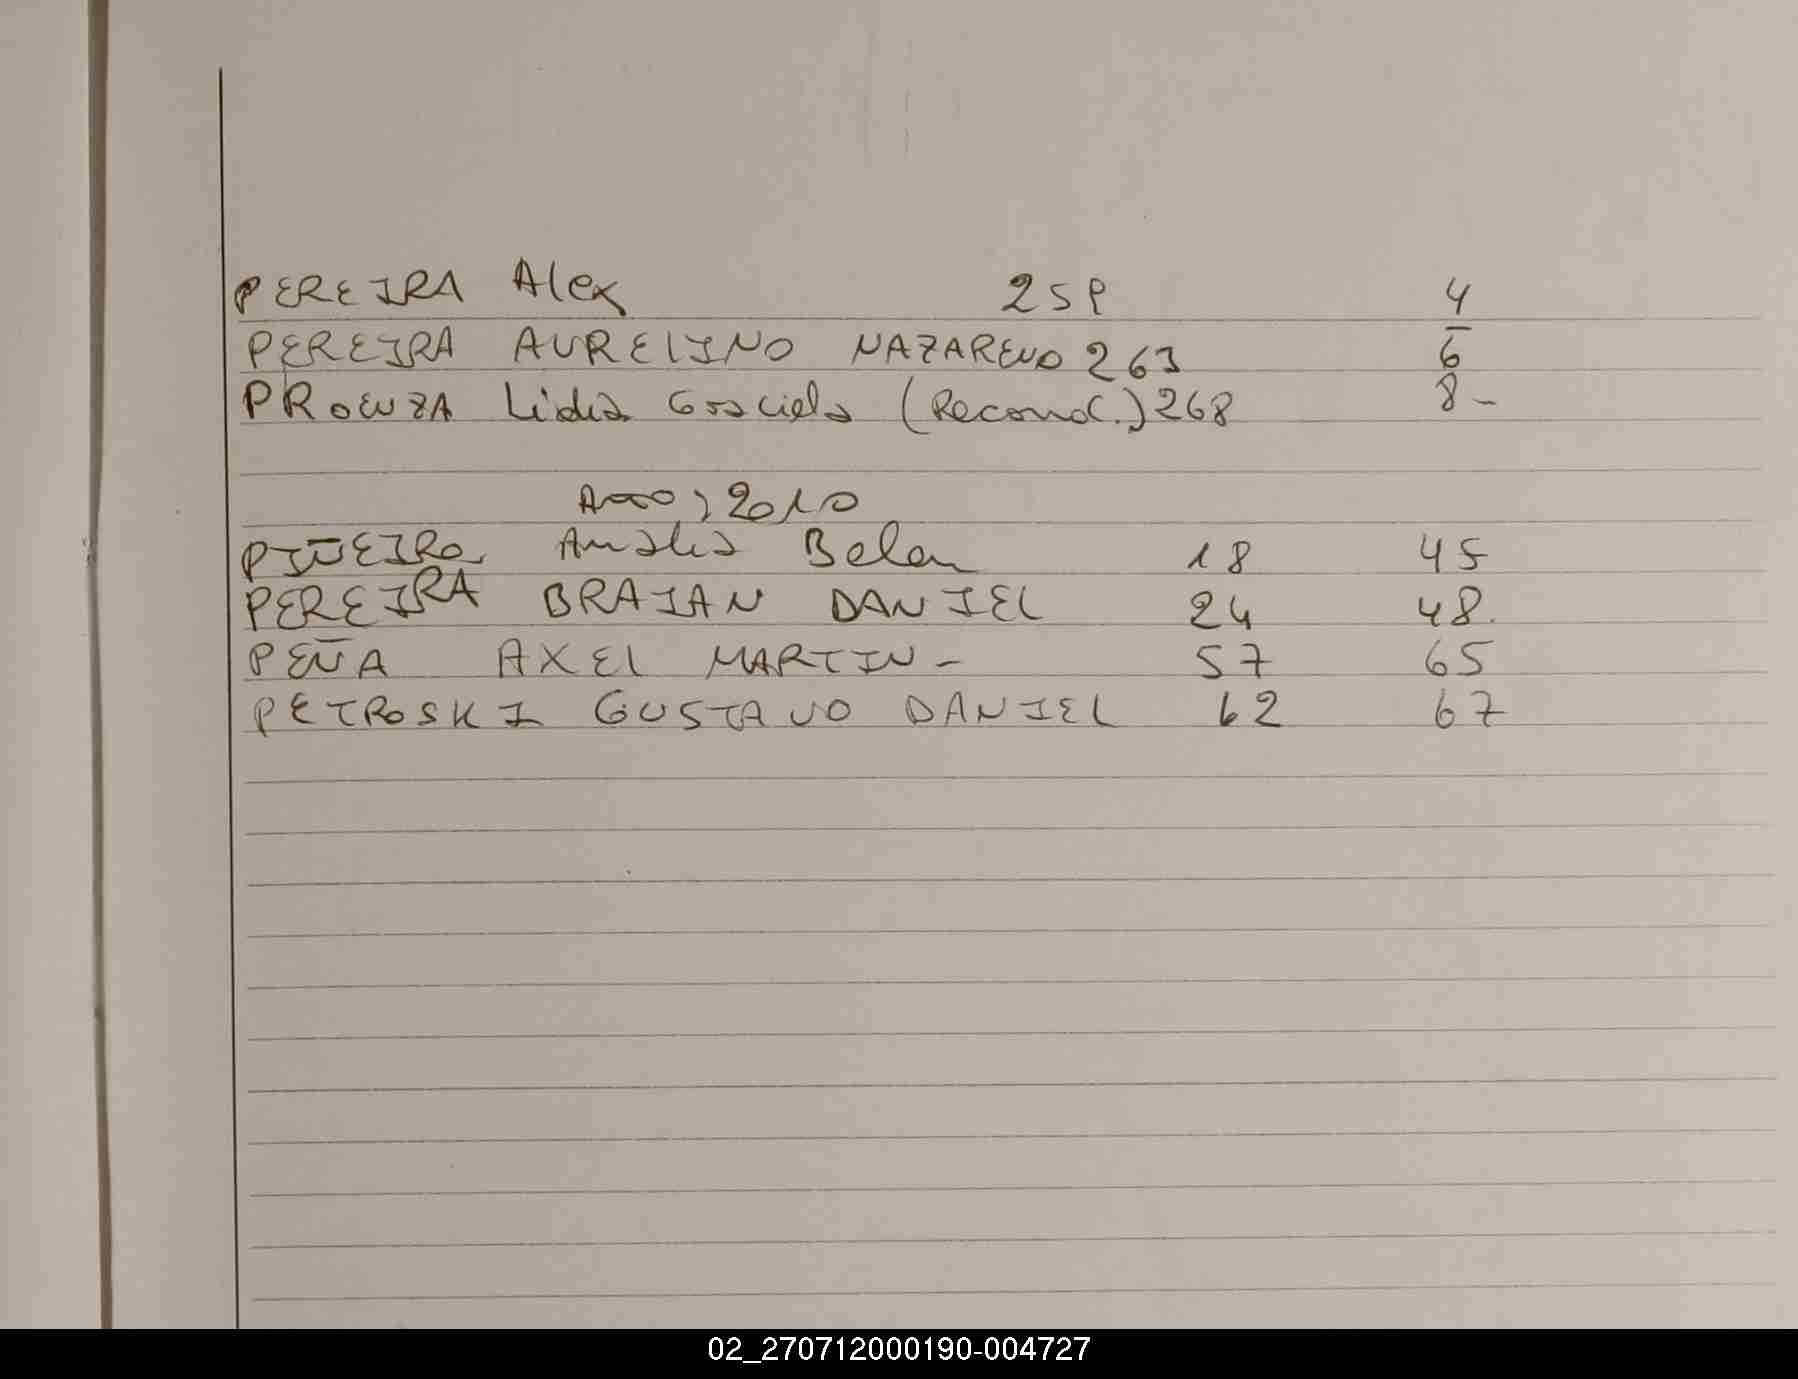 PEREIRA Alex 259 4
PEREIRA AURELINO NAZARENO 263 6
PROENZA Lidia Graciela (Reconoc.) 268 8-
Año; 2010
PIÑEIRO Analia Belen 18 45
PEREIRA BRAIAN DANIEL 24 48.
PEÑA AXEL MARTIN- 57 65
PETROSKI GUSTAVO DANIEL 62 67
02_270712000190-004727